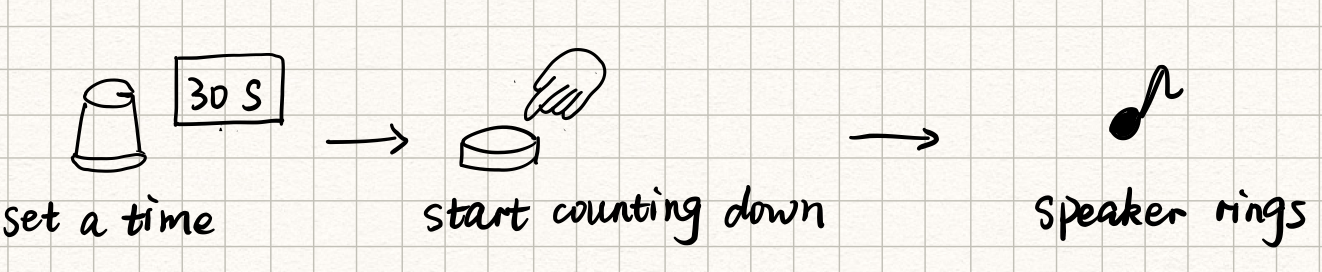 30 S
set a time
start counting down
speaker rings